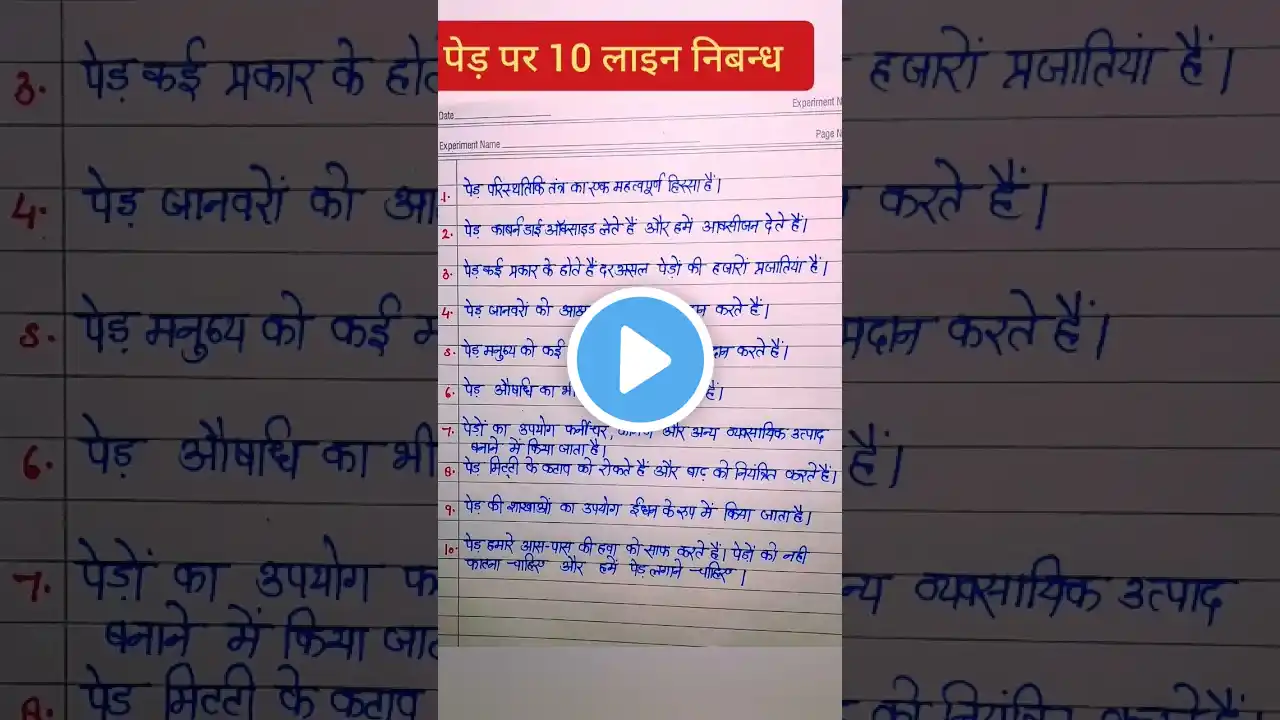 पेड़ पर 10 लाइन निबन्ध
Date
Experiment N
Experiment Name
Page N
1. पेड़ परिस्थतिकि तंत्र का एक महत्वपूर्ण हिस्सा हैं।
2. पेड़ काबर्न डाई ऑक्साइड लेते हैं और हमें आक्सीजन देते हैं।
3. पेड़ कई प्रकार के होते हैं दरअसल पेड़ों की हजारों प्रजातियां हैं।
4. पेड़ जानवरों को करते हैं।
5. पेड़ मनुष्य को कई करते हैं।
6. पेड़ औषधि का भी हैं।
7. पेड़ों का उपयोग फर्नीचर, और अन्य व्यवसायिक उत्पाद
बनाने में किया जाता है।
8. पेड़ मिट्टी के कटाव को रोकते हैं और बाढ़ को नियंत्रित करते हैं।
9. पेड़ की शाखाओं का उपयोग ईंधन के रूप में किया जाता है।
10. पेड़ हमारे आस-पास की हवा को साफ करते हैं। पेड़ों को नही
काटना चाहिए और हमें पेड़ लगाने चाहिए।
3. पेड़ कई प्रकार के होते हजारों प्रजातियां हैं।
4. पेड़ जानवरों को करते हैं।
5. पेड़ मनुष्य को कई प्रदान करते हैं।
6. पेड़ औषधि का भी हैं।
7. पेड़ों का उपयोग व्यवसायिक उत्पाद
बनाने में किया
8. पेड़ मिट्टी के कटाव को नियंत्रित करते हैं।